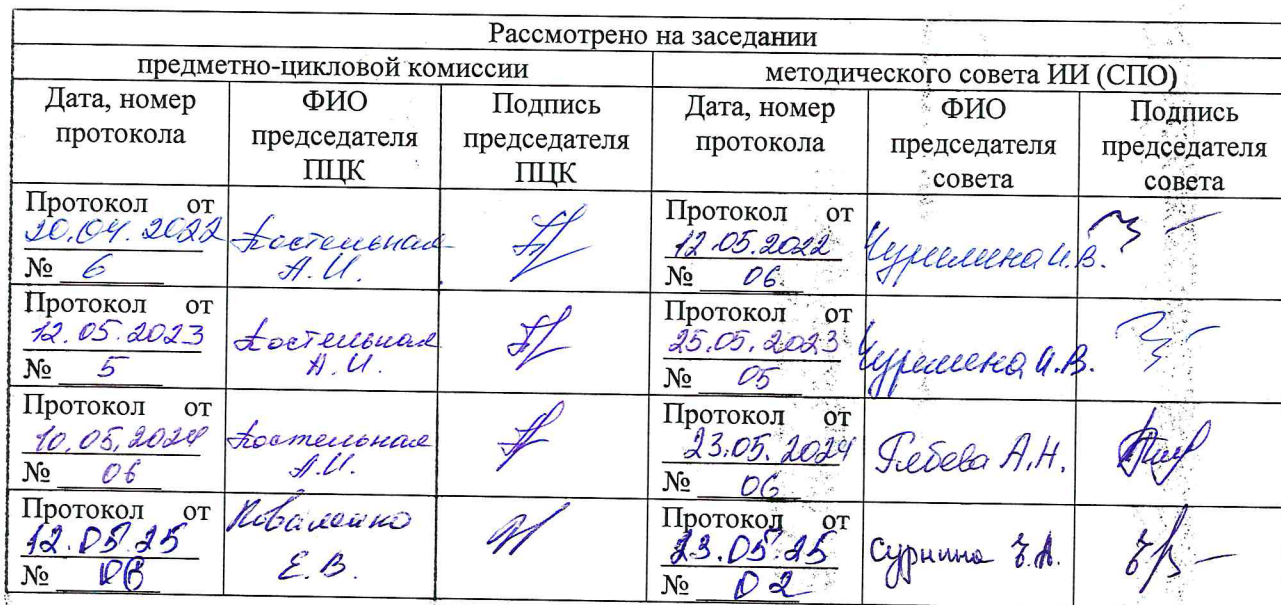 Рассмотрено на заседании
предметно-цикловой комиссии
методического совета ИИ (СПО)
Дата, номер
протокола
ФИО
председателя
ПЦК
Подпись
председателя
ПЦК
Дата, номер
протокола
ФИО
председателя
совета
Подпись
председателя
совета
Протокол от
20.04.2022
№ 6
Костельная
А.И.
Протокол от
12.05.2022
№ 06
Чурилина И.В.
Протокол от
12.05.2023
№ 5
Костельная
А.И.
Протокол от
25.05.2023
№ 05
Чурилина И.В.
Протокол от
10.05.2024
№ 06
Костельная
А.И.
Протокол от
23.05.2024
№ 06
А.Н.
Протокол от
12.05.25
№
Коваленко
Е.В.
Протокол от
23.05.25
№ 02
Сурнина